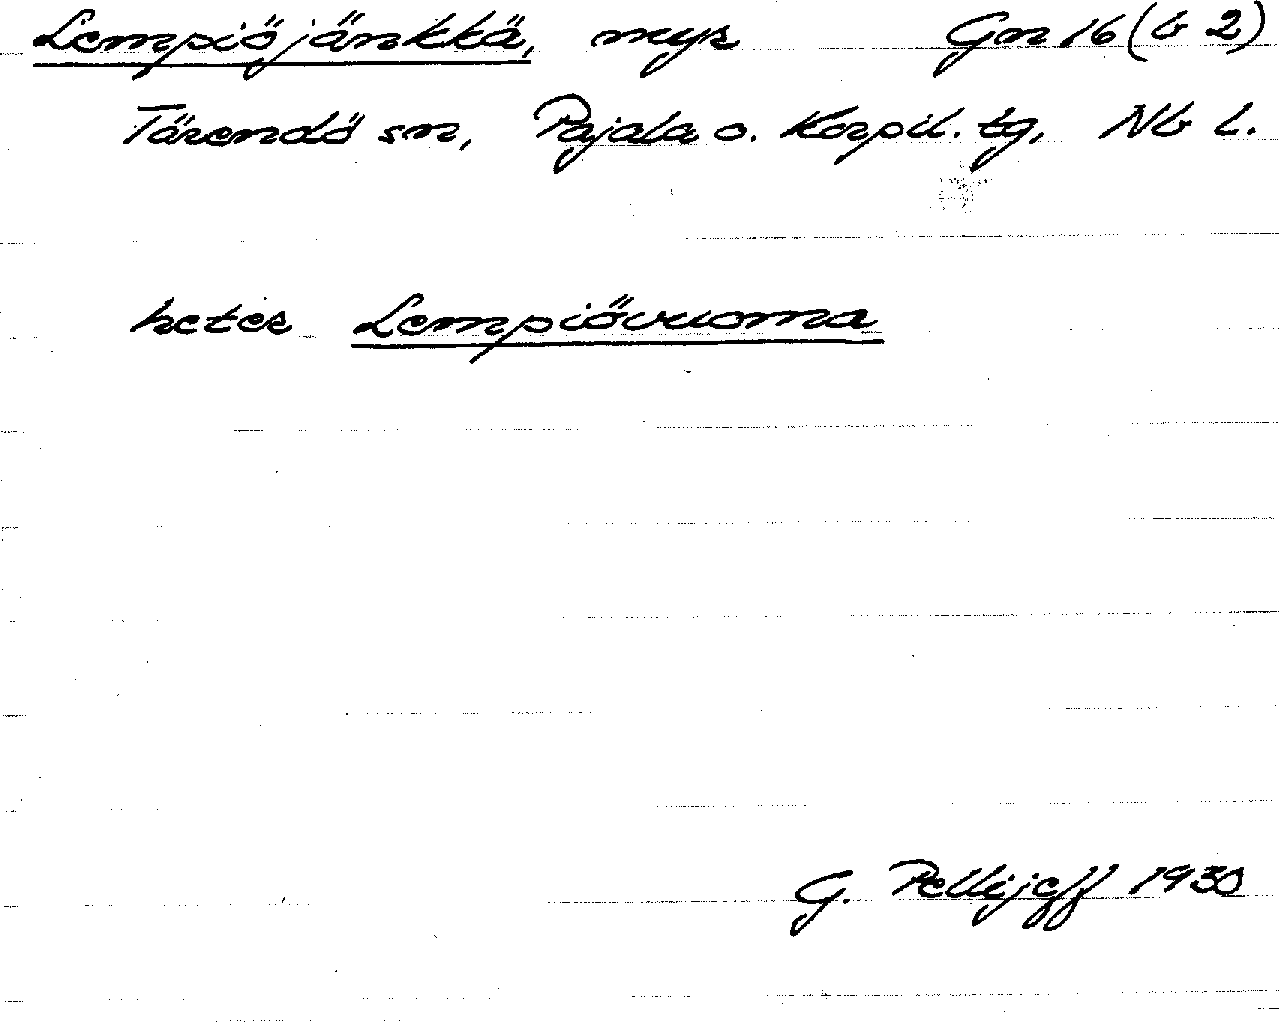 Lempiöjänkkä, myr Gn 16 (b 2)
Tärendö sn, Pajala o. Korpil. tg, Nb l.
heter Lempiövuoma
G. Pellijeff 1930